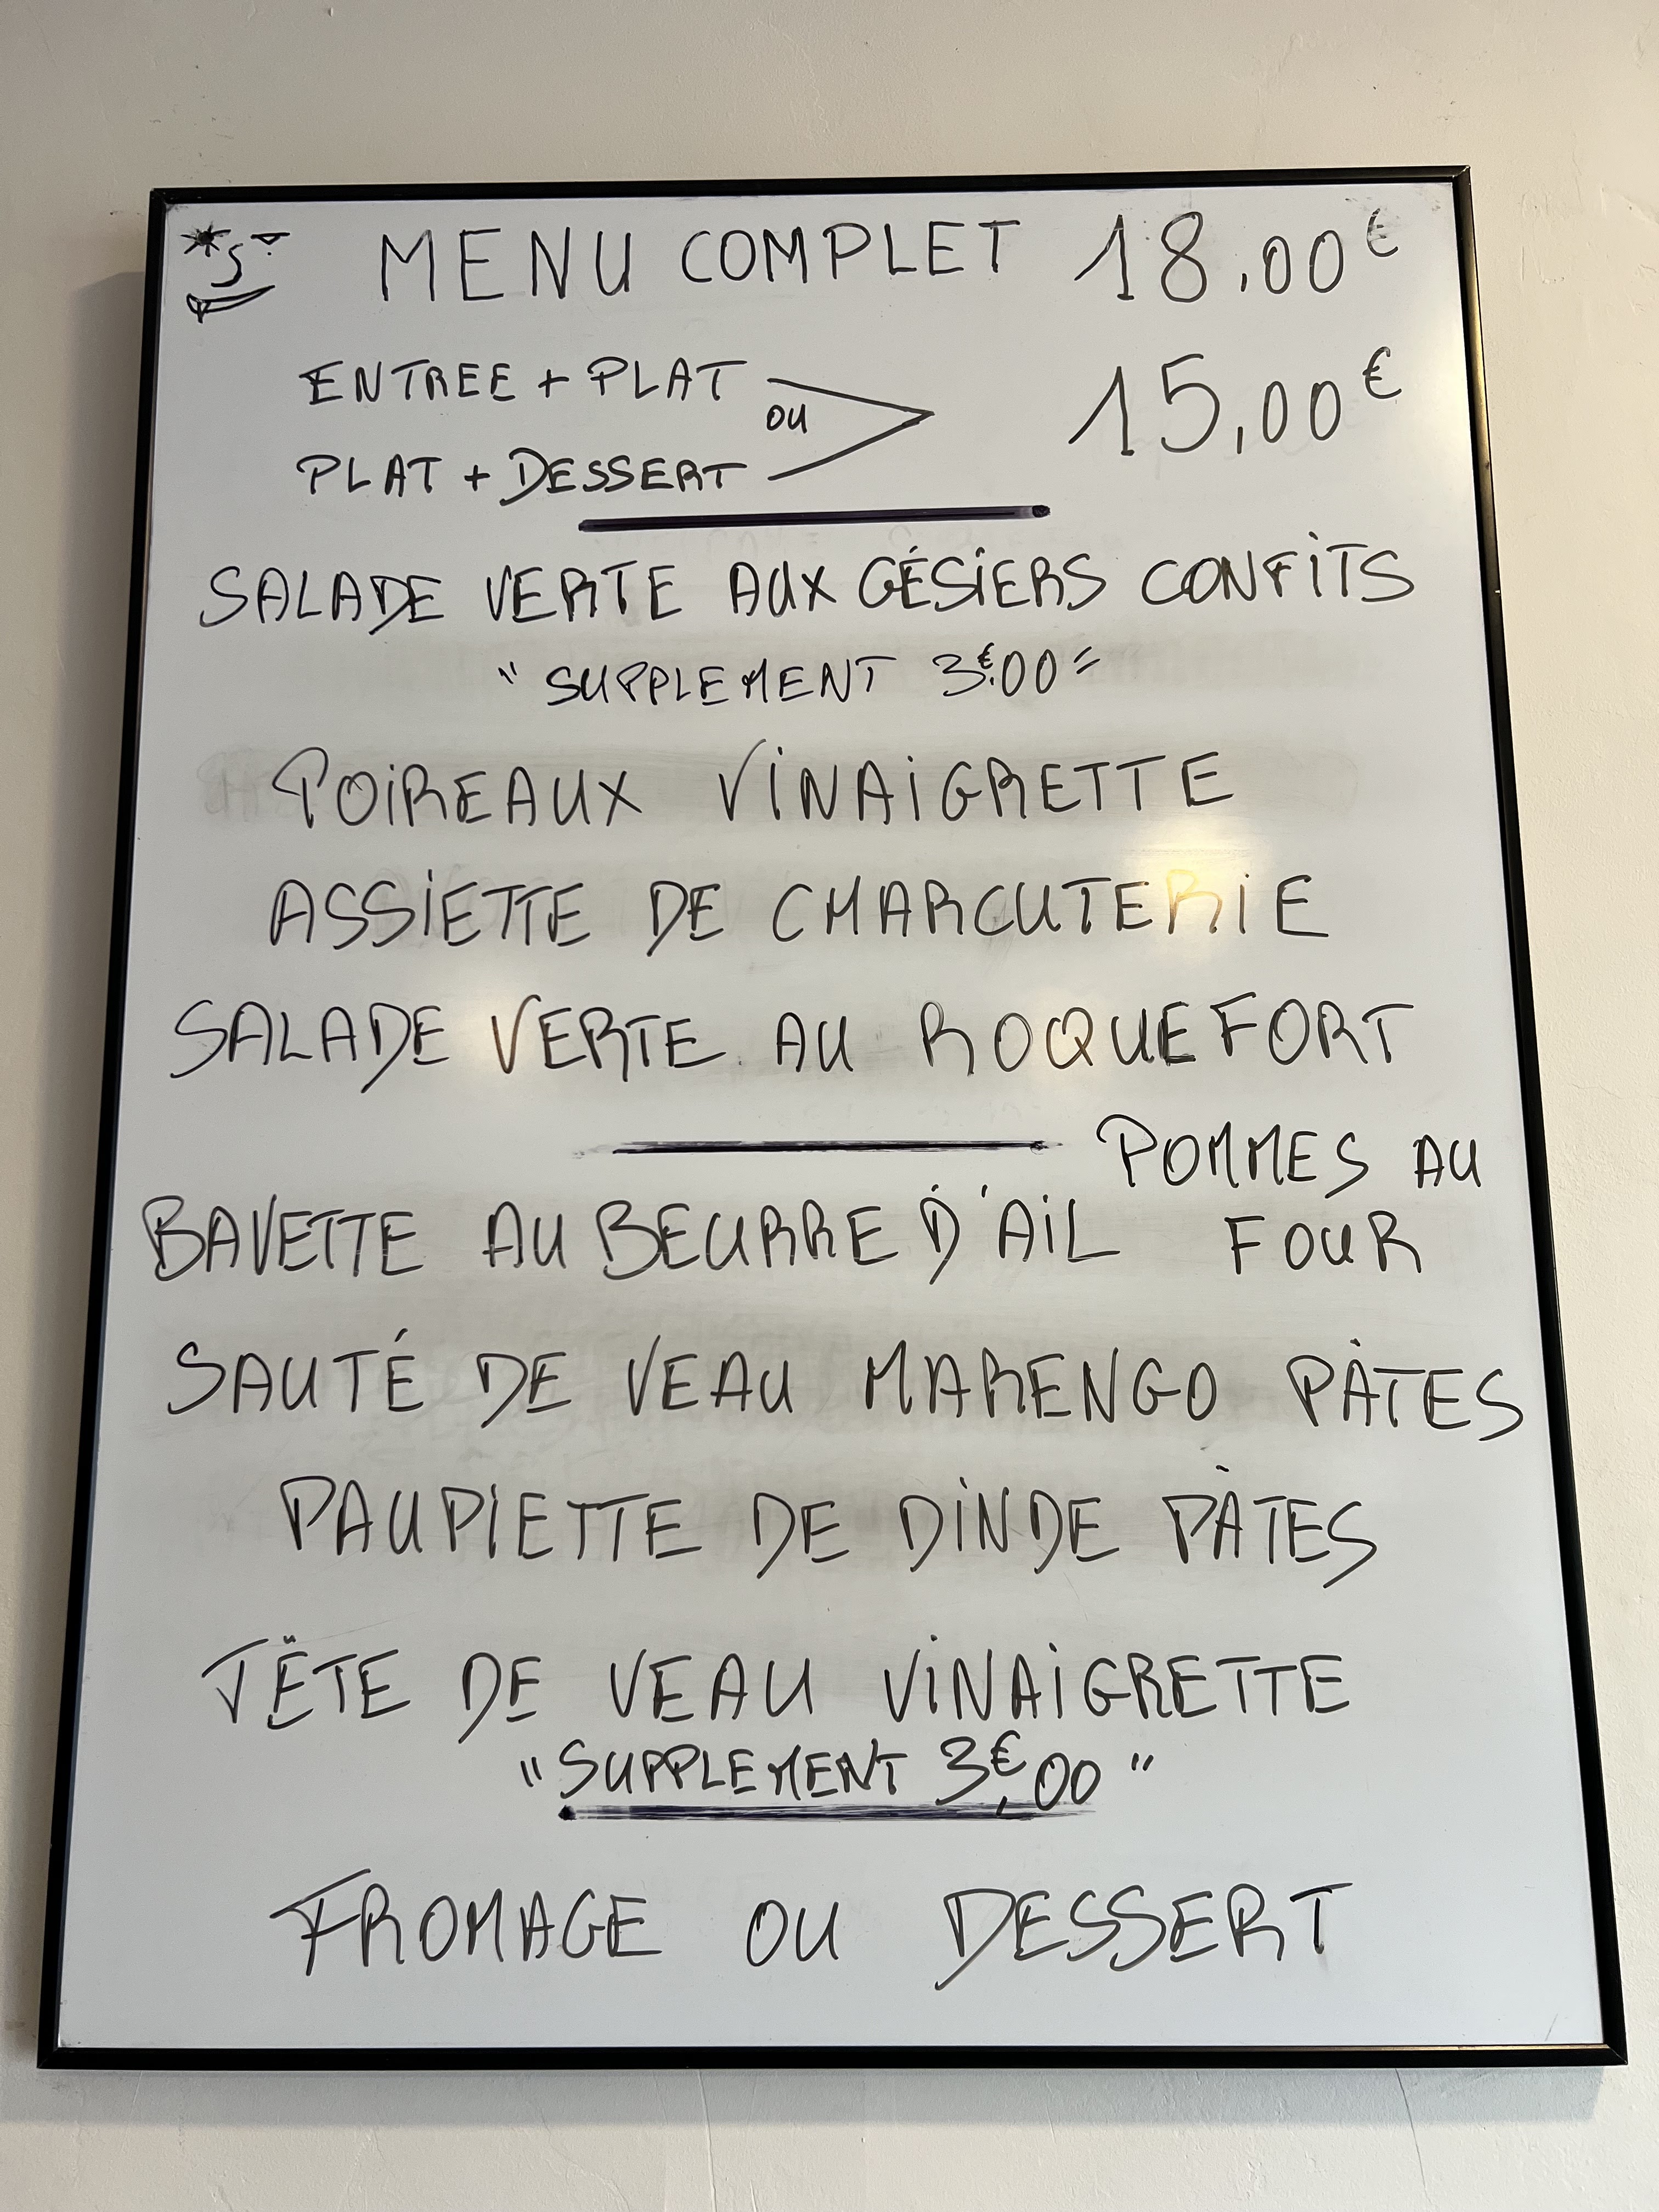 MENU COMPLET 18.00€
ENTREE + PLAT
ou
15,00€
PLAT + DESSERT
SALADE VERTE AUX GÉSIERS CONFITS
"SUPPLEMENT 3€.00"
POIREAUX VINAIGRETTE
ASSIETTE DE CHARCUTERIE
SALADE VERTE AU ROQUEFORT
BAVETTE AU BEURRE D'AIL POMMES AU
FOUR
SAUTÉ DE VEAU MARENGO PÂTES
PAUPIETTE DE DINDE PÂTES
TÊTE DE VEAU VINAIGRETTE
"SUPPLEMENT 3€,00"
FROMAGE OU DESSERT